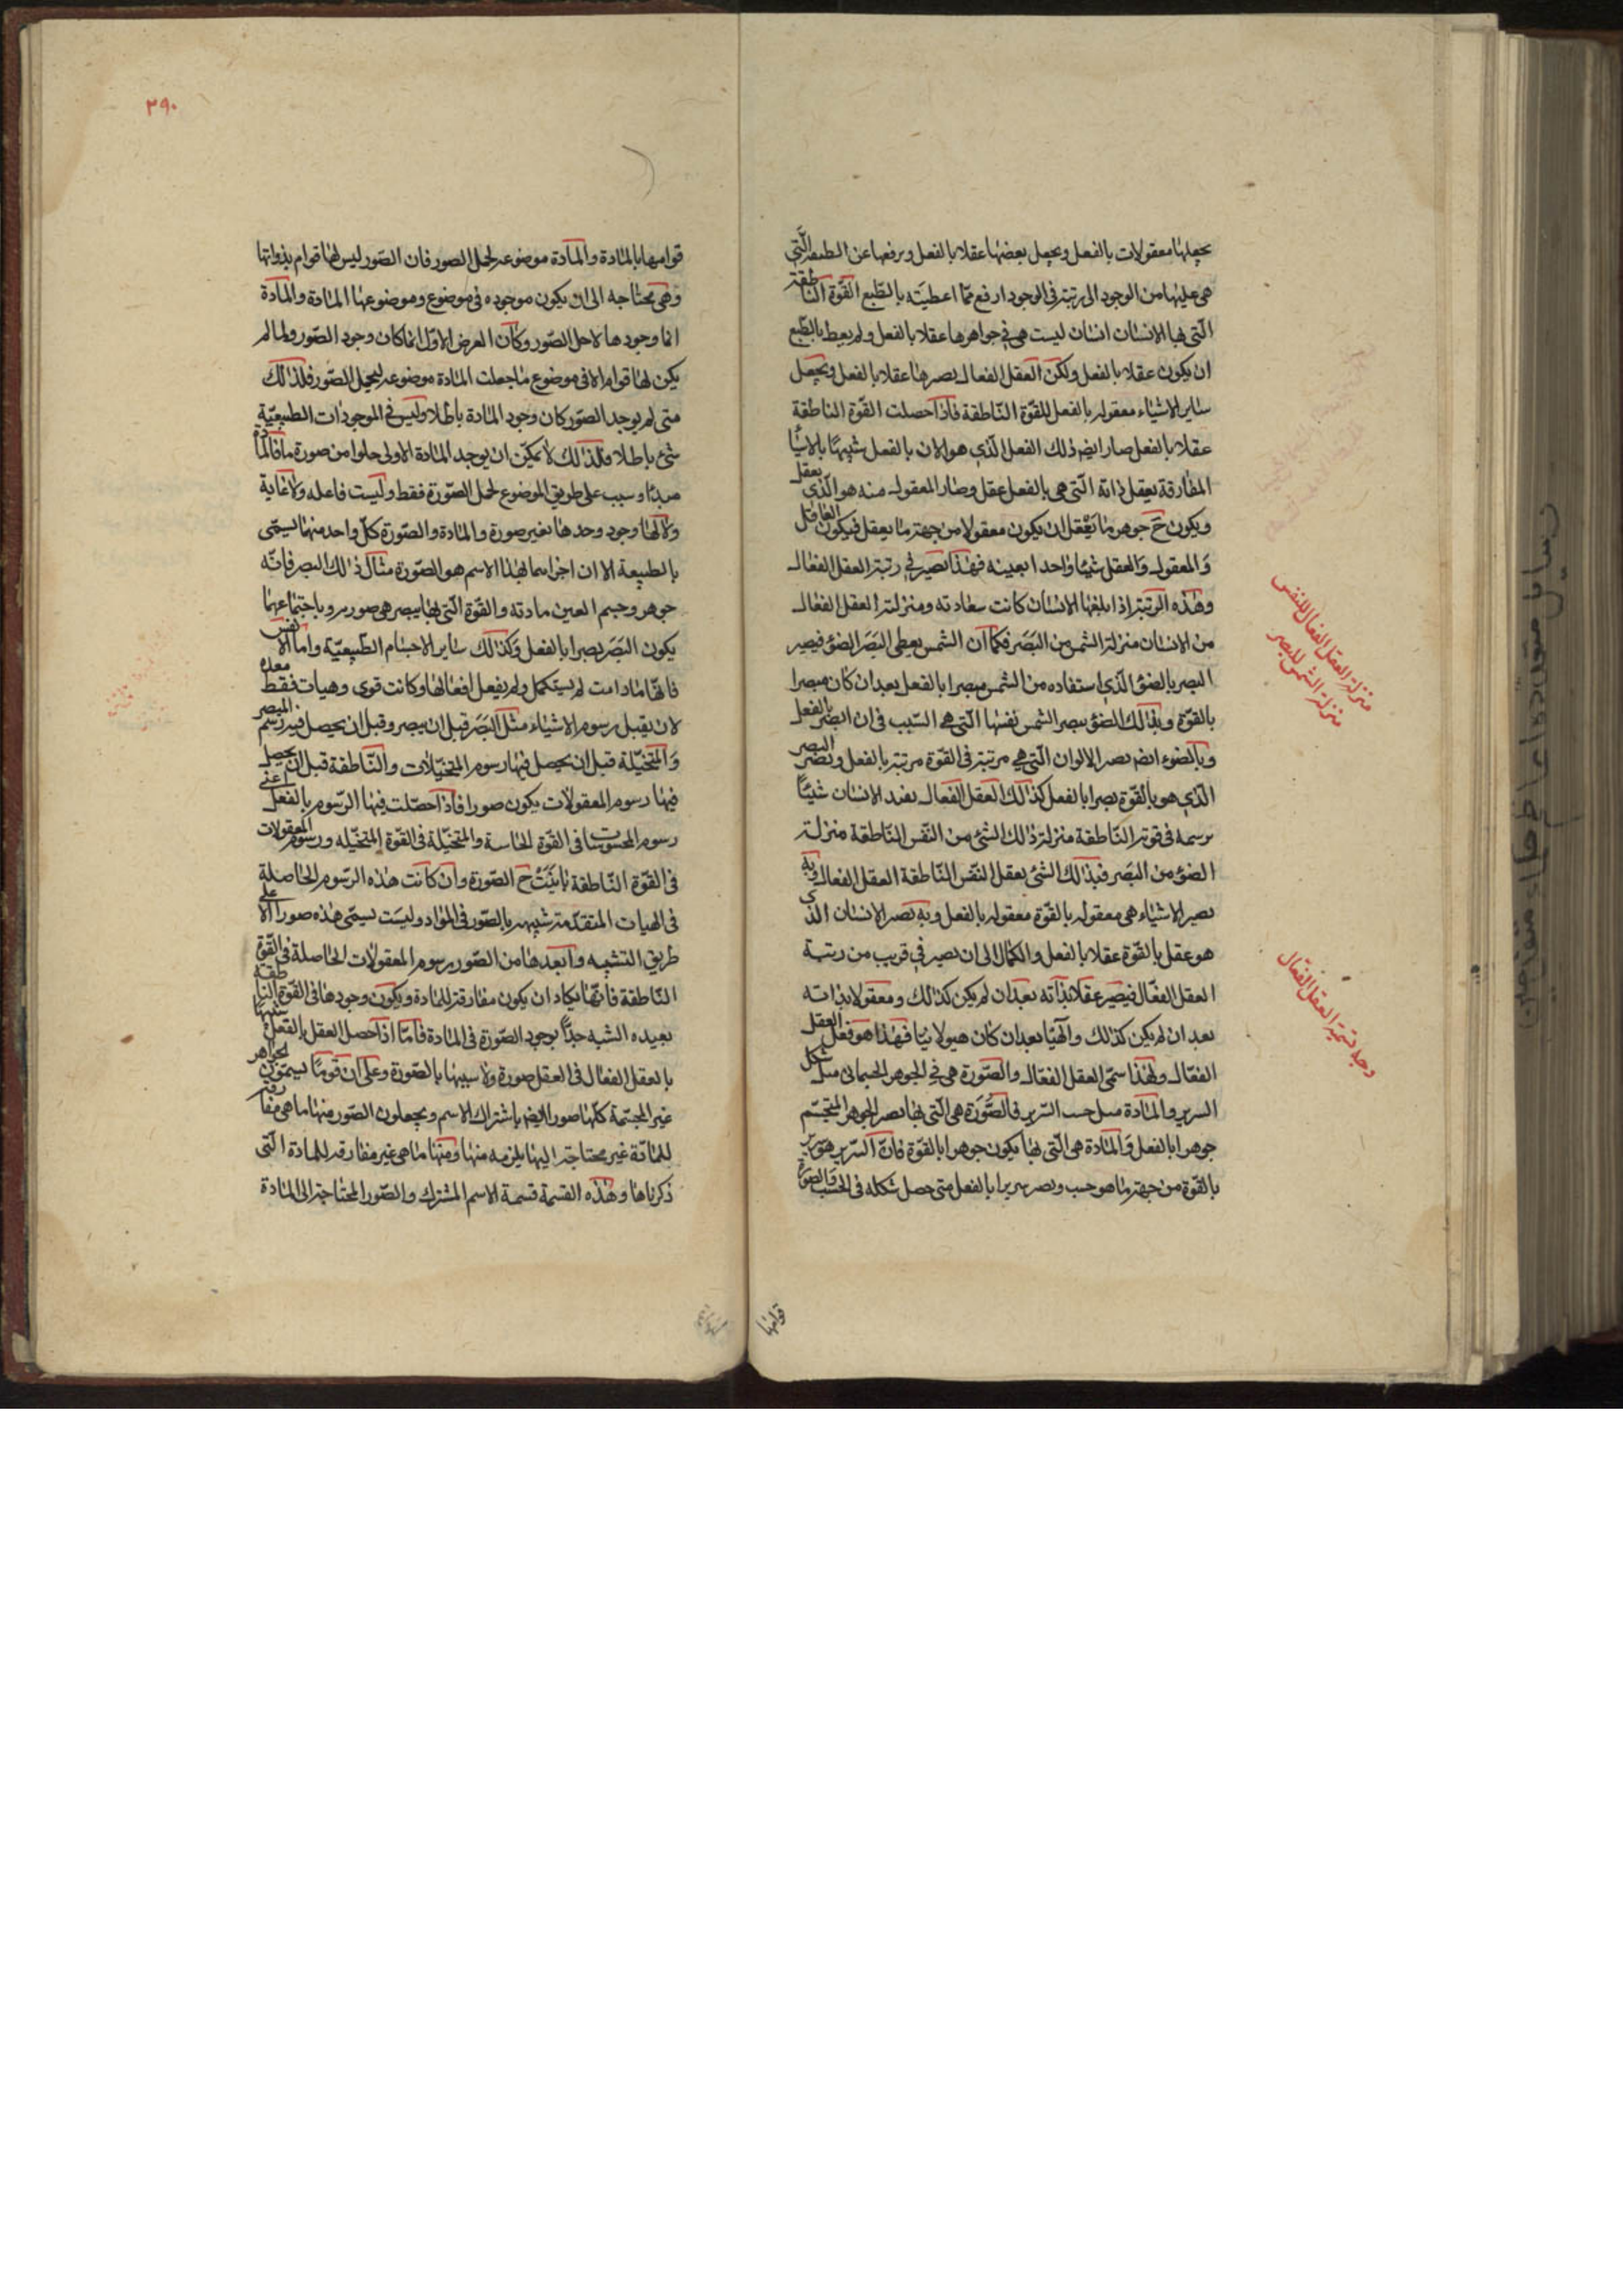 يجعلها معقولات بالفعل ويجعل بعضها عقلا بالفعل ويرفعها عن الطبيعة الّتي
هي عليها من الوجود الى رتبة في الوجود ارفع ممّا اعطيته بالطّبع القوّة الناطقة
الّتي بها الانسان انسان ليست هي في جواهرها عقلا بالفعل ولم يعط بالطّبع
ان يكون عقلا بالفعل ولكن العقل الفعال يصيرها عقلا بالفعل ويجعل
ساير الاشياء معقولة بالفعل للقوّة النّاطقة فاذا حصلت القوّة الناطقة
عقلا بالفعل صار ايضا ذلك الفعل الّذي هو الان بالفعل شبيها بالاشيا
المفارقة يعقل ذاته الّتي هي بالفعل عقل وصار المعقول منه هو الّذي يعقل
ويكون ح جوهر ما يعقل ان يكون معقولا من جهة ما يعقل فيكون العاقل
والمعقول والعقل شيئا واحدا بعينه فهذا يصير في رتبة العقل الفعال
وهذه الرتبة اذا بلغها الانسان كانت سعادته ومنزلة العقل الفعال
من الانسان منزلة الشمس من البصر فكما ان الشمس يعطى البصر الضوء فيصير
البصر بالضوء الّذي استفاده من الشمس مبصرا بالفعل بعد ان كان مبصرا
بالقوّة وبذلك الضوء يبصر الشمس نفسها الّتي هي السّبب في ان ابصر بالفعل
وبالضوء ايضا يصير الالوان الّتي هي مرئية في القوّة مرئية بالفعل ويصير البصر
الّذي هو بالقوّة بصرا بالفعل كذلك العقل الفعال يفيد الانسان شيئاً
يرسمه في قوته النّاطقة منزلة ذلك الشئ من النّفس النّاطقة منزلة
الضوء من البصر فبذلك الشئ يعقل النفس النّاطقة العقل الفعال وبه
يصير الاشياء هي معقولة بالقوّة معقولة بالفعل وبه يصير الانسان الذي
هو عقل بالقوّة عقلا بالفعل والكمال الى ان يصير في قريب من رتبة
العقل الفعّال فيصير عقلا بذاته بعد ان لم يكن كذلك ومعقولا بذاته
بعد ان لم يكن كذلك والهيّا بعد ان كان هيولانيا فهذا هو فعل العقل
الفعّال ولهذا سمّى العقل الفعّال والصّورة هي في الجوهر الجسمانى مثل شكل
السرير والمادة مثل خشب السّرير فالصّورة هي الّتي بها يصير الجوهر المتجسّم
جوهرا بالفعل والمادة هي الّتي بها يكون جوهرا بالقوّة فانّ السّرير هو سرير
بالقوّة من جهة ما هو خشب ويصير سريرا بالفعل متى حصل شكله في الخشب والصّورة
منزلة العقل الفعال للنفس
منزلة الشمس للبصر
وجه تسمية العقل الفعّال
قوامها
٢٩٠
قوامها بالمادة والمادة موضوعه لحمل الصور فان الصّور ليس لها قوام بذواتها
وهي محتاجه الى ان يكون موجوده في موضوع وموضوعها المادة والمادة
انما وجودها لاجل الصّور وكان الغرض الاوّل انما كان وجود الصّور ولما لم
يكن لها قوام الا في موضوع ما جعلت المادة موضوعه ليحمل الصّور فلذلك
متى لم يوجد الصّور كان وجود المادة باطلا وليس في الموجودات الطبيعيّة
شئ باطلا فلذلك لا يمكن ان يوجد المادة الاولى خلوا من صورة ما فالمادة
مبدأ وسبب على طريق الموضوع لحمل الصّورة فقط وليست فاعله ولا غاية
ولا لها وجود وحدها بغير صورة والمادة والصّورة كلّ واحد منهما يسمّى
بالطبيعة الا ان احراهما بهذا الاسم هو الصّورة مثال ذلك البصر فانّه
جوهر وجسم العين مادته والقوّة الّتي بها يبصر هي صورته وباجتماعهما
يكون البصر بصرا بالفعل وكذلك ساير الاجسام الطّبيعيّة واما الانفس
فانها مادامت لم يستكمل ولم يفعل افعالها وكانت قوى وهيات فقط معدّه
لان يقبل رسوم الاشياء مثل البصر قبل ان يبصر وقبل ان يحصل فيه رسم المبصر
والمتخيّلة قبل ان يحصل فيها رسوم المتخيّلات والنّاطقة قبل ان يحصل
فيها رسوم المعقولات يكون صورا فاذا حصّلت فيها الرّسوم بالفعل اعني
رسوم المحسوسات في القوة الحاسة والمتخيّلة في القوة المتخيّله ورسوم المعقولات
في القوّة النّاطقة باينت ح الصّورة وان كانت هذه الرّسوم الحاصلة
في الهيات المتقدّمة شبيهة بالصّور في المواد وليست يسمّى هذه صورا الا على
طريق التشبيه وابعدها من الصّور رسوم المعقولات الحاصلة في القوّة
النّاطقة فانّها يكاد ان يكون مفارقة للمادة ويكون وجودها في القوّة الناطقة
بعيده الشبه جدّاً بوجود الصّورة في المادة فامّا اذا حصل العقل بالفعل شبيها
بالعقل الفعال في العقل صورة ولا شبيها بالصّورة وعلى ان قوماً يسمّون الجواهر
غير المجسّمة كلّها صورا ايضا باشتراك الاسم ويجعلون الصّور منها ما هي مفارقة
للمادّة غير محتاجة اليها يلزمه منها ومنها ما هي غير مفارقه للمادة الّتي
ذكرناها وهذه القسمة قسمة الاسم المشترك والصّور المحتاجة الى المادة